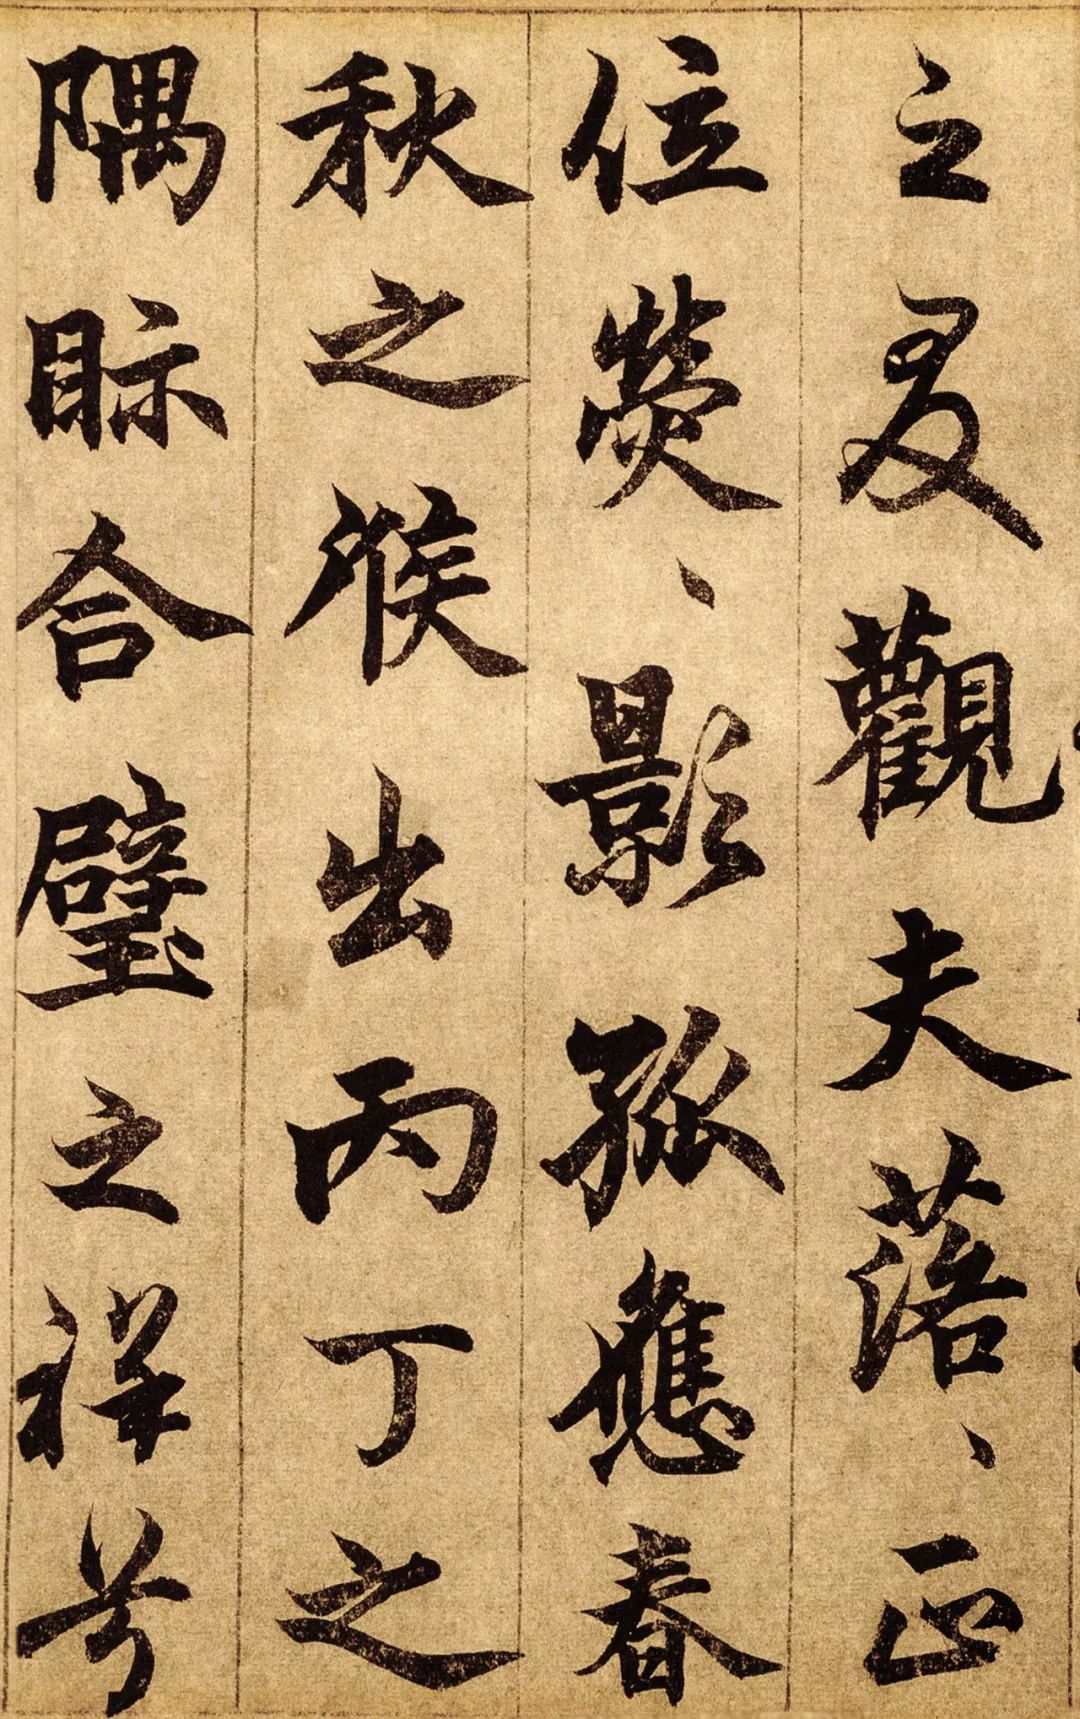 之觀夫落、正
位熒、影孤應春
秋之候出丙丁之
隅眎合璧之祥兮